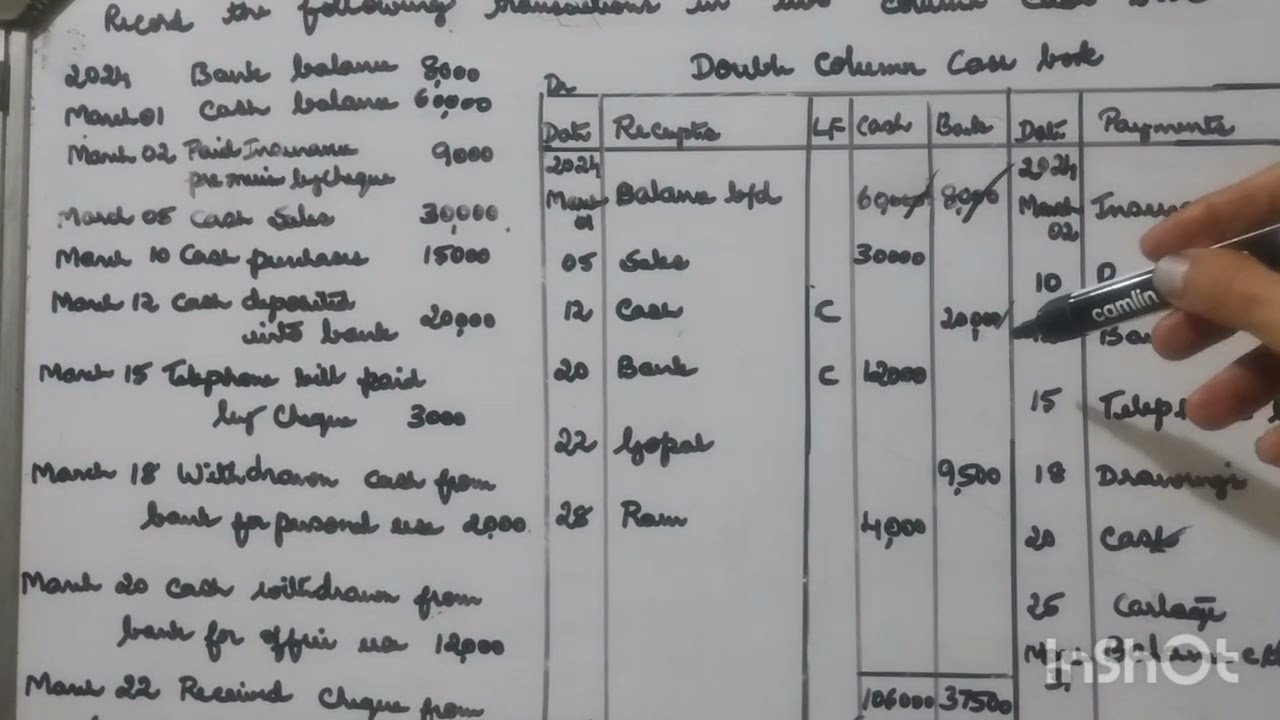 Record the following transactions in two column cash book
2024 Bank balance 8,000
March 01 Cash balance 60,000
March 02 Paid Insurance 9000
premium by cheque
March 05 Cash Sales 30,000
March 10 Cash purchases 15000
March 12 Cash deposited
into bank 20,000
March 15 Telephone bill paid
by Cheque 3000
March 18 Withdrawn cash from
bank for personal use 2,000
March 20 Cash withdrawn from
bank for office use 12,000
March 22 Received cheque from
Double Column Cash book
Dr
Date Receipts LF Cash Bank Date Payments
2024 2024
March 01 Balance b/d 60,000 8,000 March 02
05 Sales 30000 10
12 Cash C 20,000
20 Bank C 12000 15
22 Gopal 9,500 18 Drawings
28 Ram 4,000 20 Cash
25 Cartage
106000 37500
camlin
InShOT